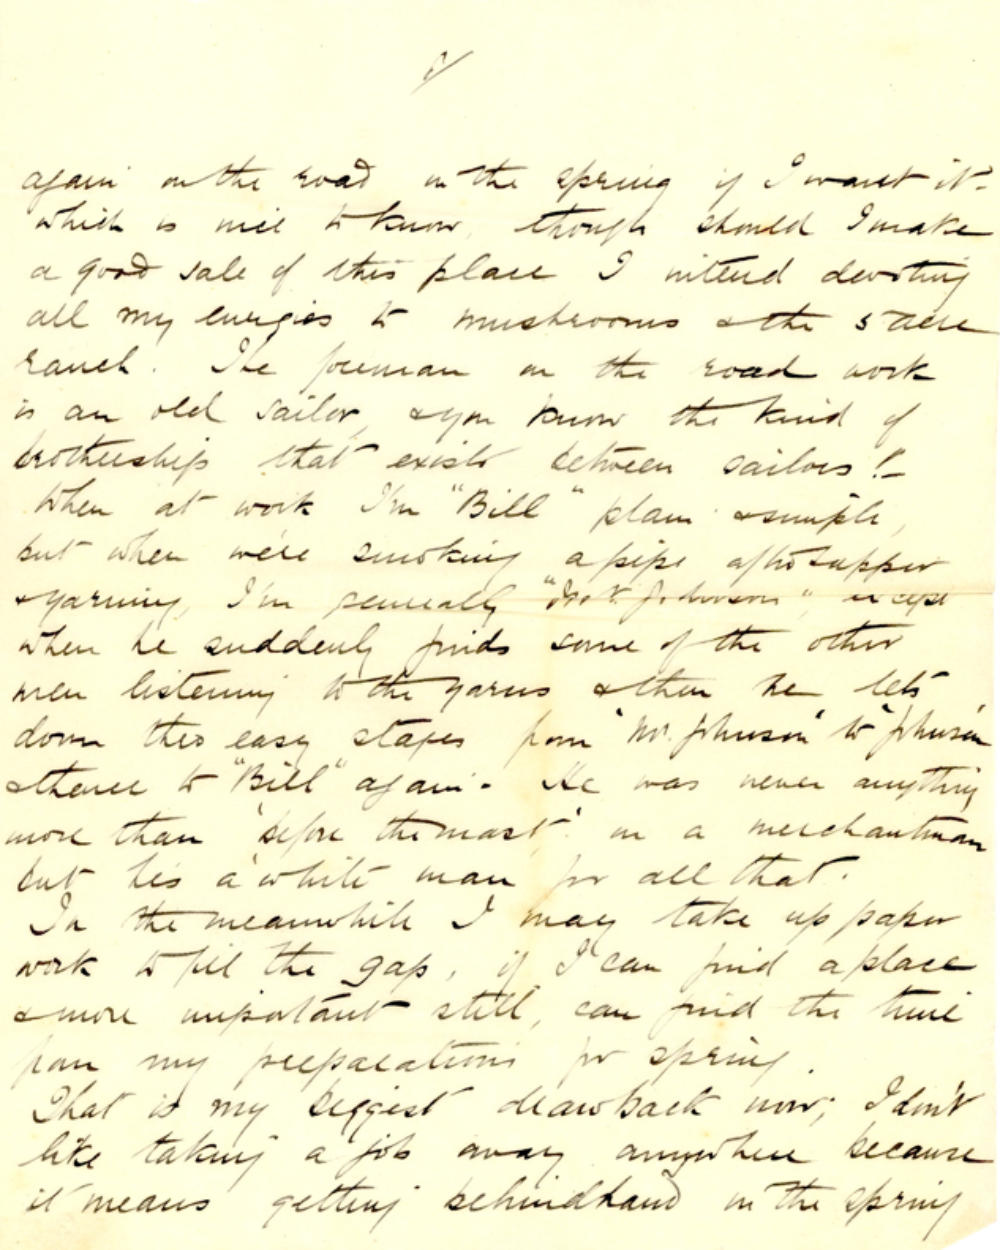 again on the road in the spring if I want it -
which is nice to know, though should I make
a good sale of this place I intend devoting
all my energies to mushrooms & the 5 acre
ranch. The foreman on the road work
is an old sailor, & you know the kind of
brothership that exists between sailors! -
When at work I'm "Bill" plain & simple,
but when we're smoking a pipe after supper
& yarning, I'm generally "Mr. Johnson", except
when he suddenly finds some of the other
men listening to the yarns & then he lets
down thro easy stages from "Mr. Johnson" to "Johnson"
& thence to "Bill" again - He was never anything
more than "before the mast" on a merchantman
but he's a white man for all that.
In the meanwhile I may take up paper
work to fill the gap, if I can find a place
& more important still, can find the time
from my preparations for spring.
That is my biggest drawback now; I don't
like taking a job away anywhere because
it means getting behindhand in the spring